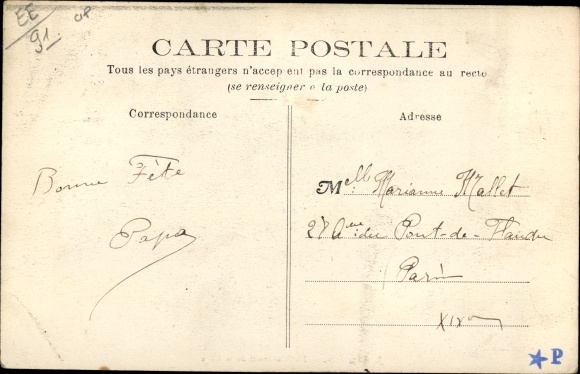 EE
91
CP
CARTE POSTALE
Tous les pays étrangers n'accep ent pas la correspondance au recto
(se renseigner à la poste)
Correspondance
Bonne Fête
Papa
Adresse
Mell. Marianne Mallet
27 Ave du Pont-de-Flandre
Paris
XIXe
★P